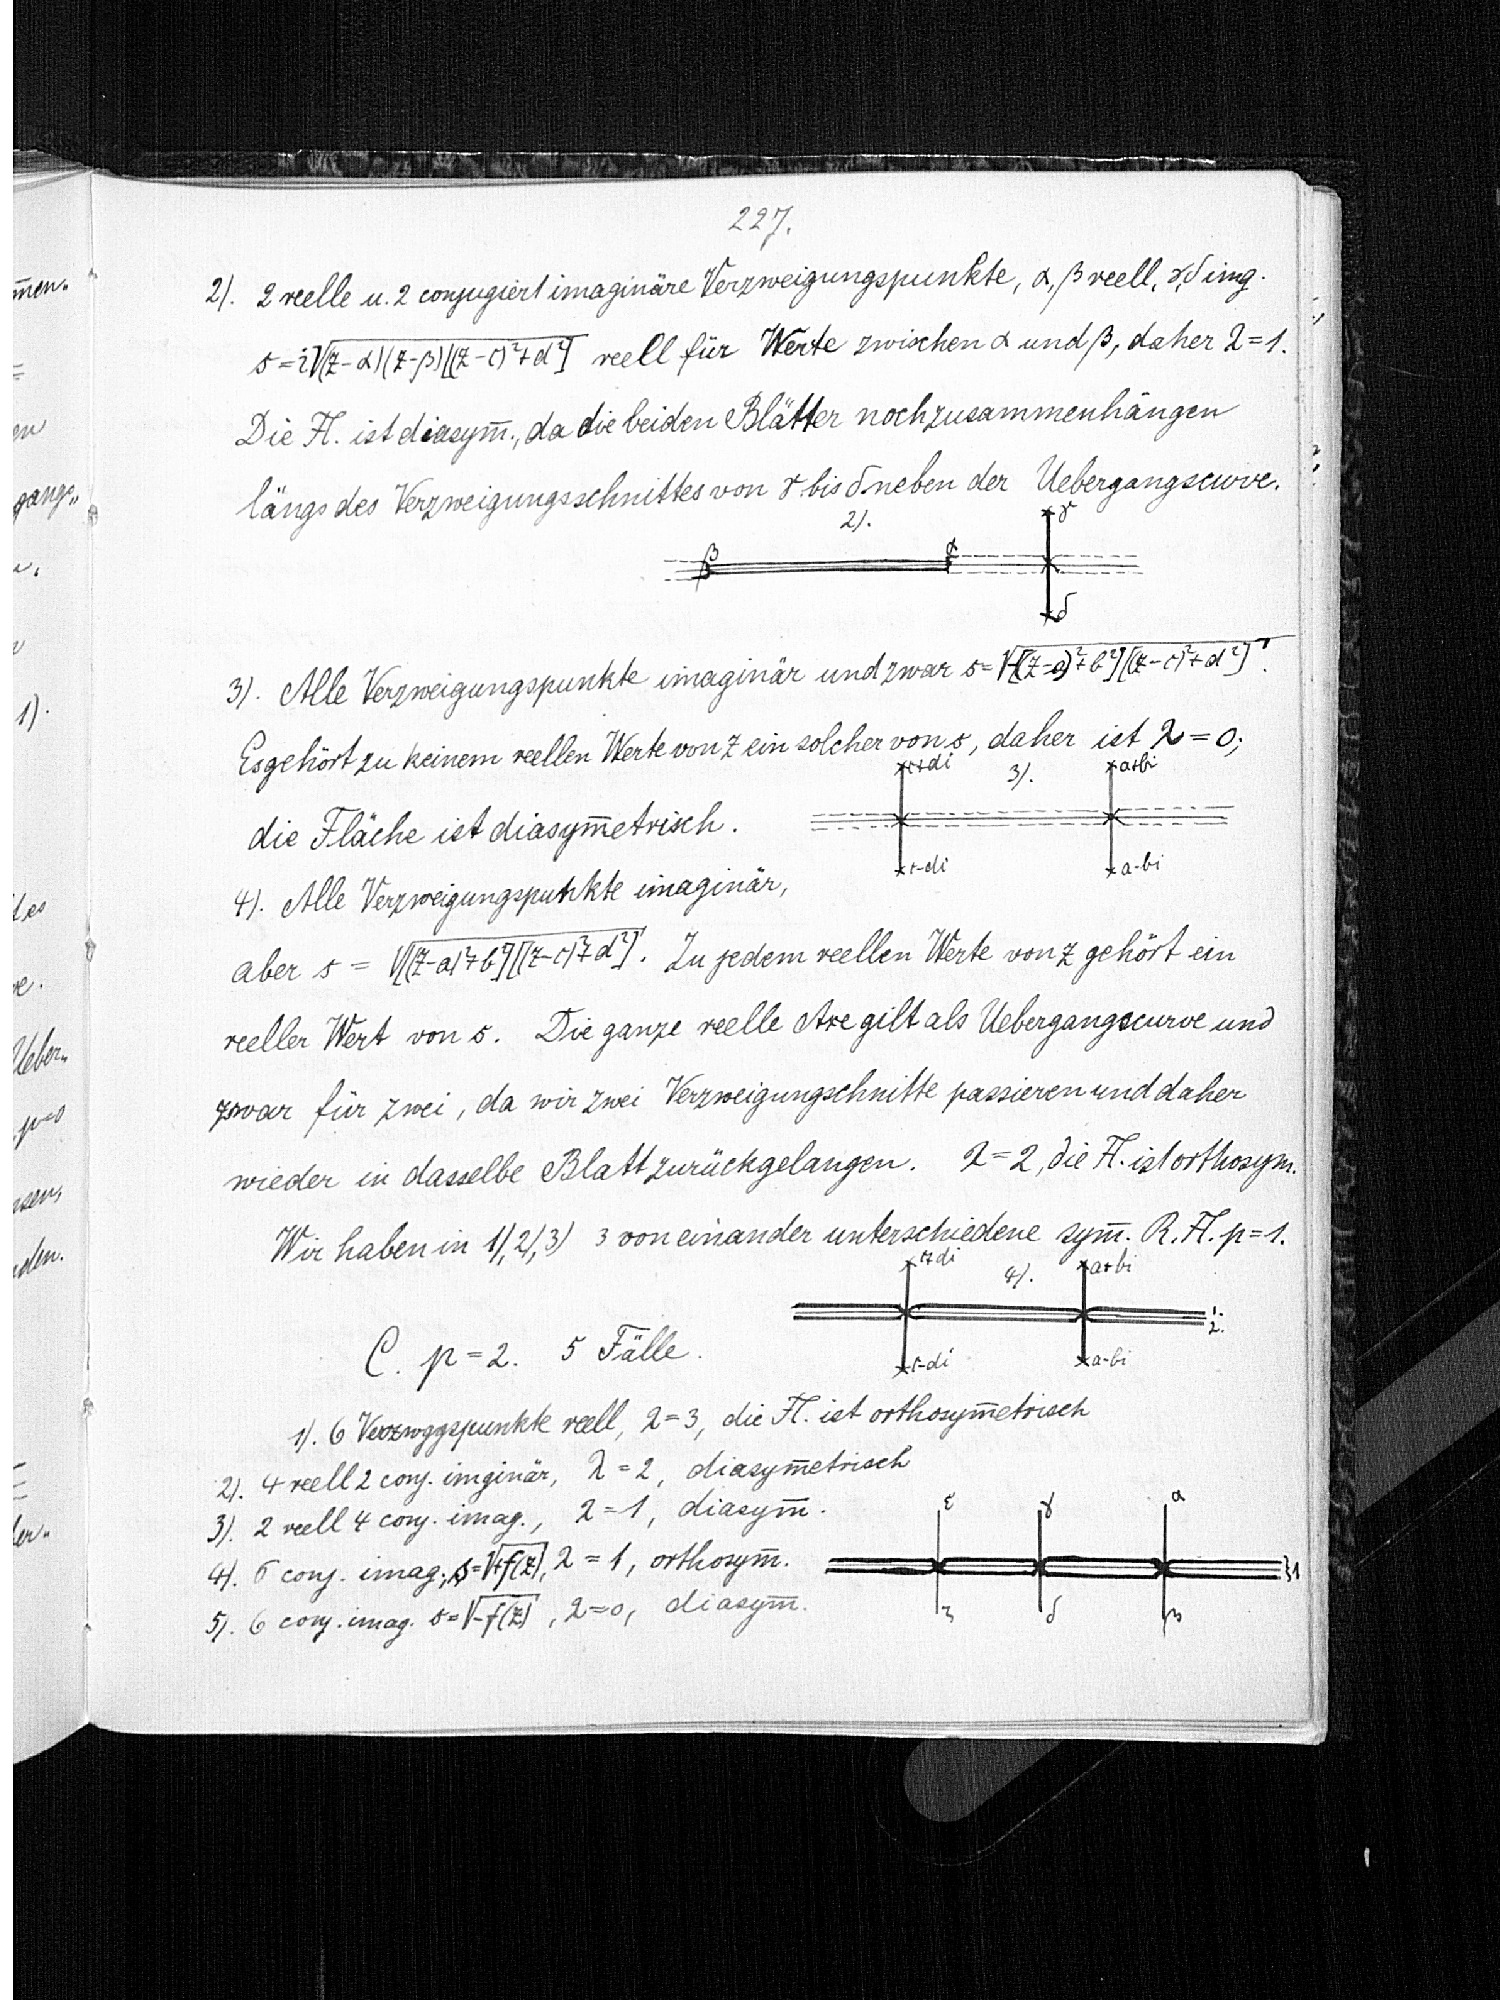 227.
2). 2 reelle u. 2 conjugiert imaginäre Verzweigungspunkte, α, β reell, γ, δ img.
s = i√(z-α)(z-β)[(z-c)²+d²] reell für Werte zwischen α und β, daher λ=1.
Die Fl. ist diasym̄., da die beiden Blätter noch zusammenhängen
längs des Verzweigungsschnittes von γ bis δ neben der Uebergangscurve.
2).
β α γ
δ
3). Alle Verzweigungspunkte imaginär und zwar s=√-[(z-a)²+b²][(z-c)²+d²].
Es gehört zu keinem reellen Werte von z ein solcher von s, daher ist λ=0;
c+di 3). a+bi
die Fläche ist diasym̄etrisch.
c-di a-bi
4). Alle Verzweigungspunkte imaginär,
aber s = √[(z-a)²+b²][(z-c)²+d²]. Zu jedem reellen Werte von z gehört ein
reeller Wert von s. Die ganze reelle Axe gilt als Uebergangscurve und
zwar für zwei, da wir zwei Verzweigungschnitte passieren und daher
wieder in dasselbe Blatt zurückgelangen. λ=2, die Fl. ist orthosym.
Wir haben in 1), 2), 3) 3 von einander unterschiedene sym̄. R. Fl. p=1.
c+di 4). a+bi
1.
2.
c-di a-bi
C. p=2. 5 Fälle.
1). 6 Verzwggspunkte reell, λ=3, die Fl. ist orthosym̄etrisch
2). 4 reell 2 conj. imginär, λ=2, diasym̄etrisch
3). 2 reell 4 conj. imag., λ=1, diasym̄.
ε γ α
4). 6 conj. imag., s=√+f(z), λ=1, orthosym̄.
}1
5). 6 conj. imag. s=√-f(z), λ=0, diasym̄.
ζ δ β